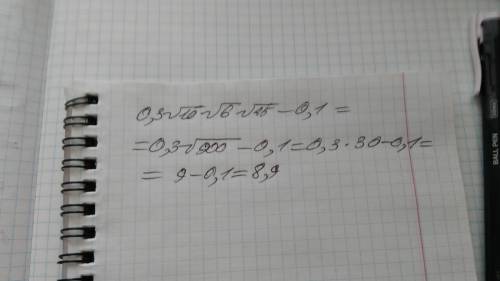 0,3√10 √6 √15 − 0,1 =
= 0,3√900 − 0,1 = 0,3 · 30 − 0,1 =
= 9 − 0,1 = 8,9
BALL PEN